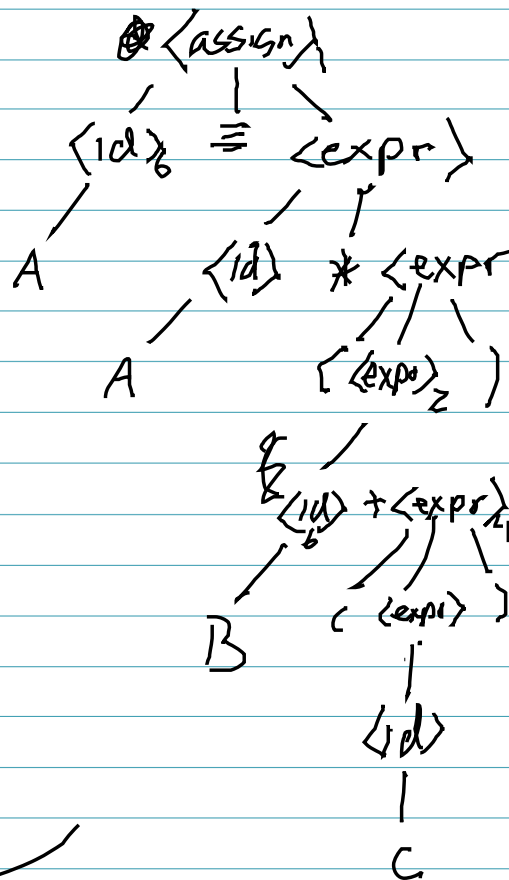 <assign>
<id>6 = <expr>
A <id> * <expr
A ( <expr>2 )
<id>6 + <expr>4
B ( <expr> )
<id>
C